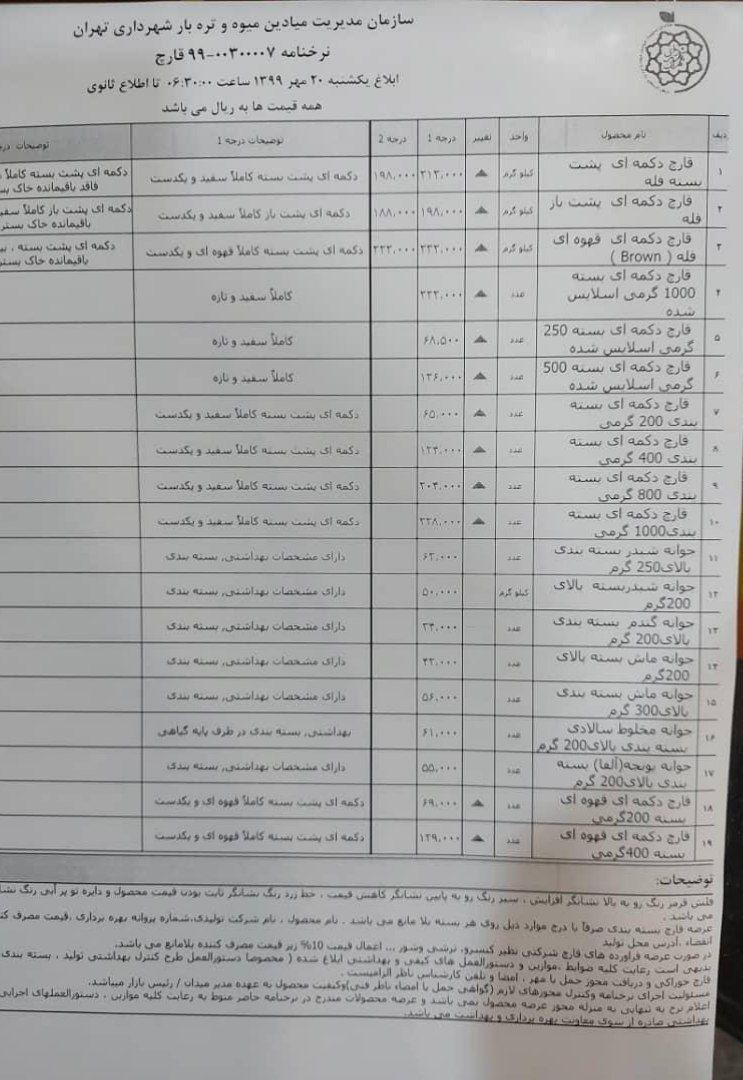 سازمان مدیریت میادین میوه و تره بار شهرداری تهران
نرخنامه ۰۰۳۰۰۰۷-۹۹ قارچ
ابلاغ یکشنبه ۲۰ مهر ۱۳۹۹ ساعت ۰۶:۳۰:۰۰ تا اطلاع ثانوی
همه قیمت ها به ریال می باشد
ردیف نام محصول واحد تغییر درجه 1 درجه 2 توضیحات درجه 1 توضیحات
۱ قارچ دکمه ای پشت بسته فله کیلو گرم ۲۱۳،۰۰۰ ۱۹۸،۰۰۰ دکمه ای پشت بسته کاملاً سفید و یکدست دکمه ای پشت بسته کاملاً
فاقد باقیمانده خاک
۲ قارچ دکمه ای پشت باز فله کیلو گرم ۱۹۸،۰۰۰ ۱۸۸،۰۰۰ دکمه ای پشت باز کاملاً سفید و یکدست دکمه ای پشت باز کاملاً
باقیمانده خاک بستر
۳ قارچ دکمه ای قهوه ای فله ( Brown ) کیلو گرم ۲۳۲،۰۰۰ ۲۲۲،۰۰۰ دکمه ای پشت بسته کاملاً قهوه ای و یکدست دکمه ای پشت بسته ،
باقیمانده خاک
۴ قارچ دکمه ای بسته 1000 گرمی اسلایس شده عدد ۲۳۳،۰۰۰ کاملاً سفید و تازه
۵ قارچ دکمه ای بسته 250 گرمی اسلایس شده عدد ۶۸،۵۰۰ کاملاً سفید و تازه
۶ قارچ دکمه ای بسته 500 گرمی اسلایس شده عدد ۱۳۶،۰۰۰ کاملاً سفید و تازه
۷ قارچ دکمه ای بسته بندی 200 گرمی عدد ۶۵،۰۰۰ دکمه ای پشت بسته کاملاً سفید و یکدست
۸ قارچ دکمه ای بسته بندی 400 گرمی عدد ۱۲۳،۰۰۰ دکمه ای پشت بسته کاملاً سفید و یکدست
۹ قارچ دکمه ای بسته بندی 800 گرمی عدد ۲۰۳،۰۰۰ دکمه ای پشت بسته کاملاً سفید و یکدست
۱۰ قارچ دکمه ای بسته بندی1000 گرمی عدد ۲۲۸،۰۰۰ دکمه ای پشت بسته کاملاً سفید و یکدست
۱۱ جوانه شبدر بسته بندی بالای250 گرم عدد ۶۲،۰۰۰ دارای مشخصات بهداشتی, بسته بندی
۱۲ جوانه شبدربسته بالای 200گرم کیلو گرم ۵۰،۰۰۰ دارای مشخصات بهداشتی, بسته بندی
۱۳ جوانه گندم بسته بندی بالای200 گرم عدد ۲۴،۰۰۰ دارای مشخصات بهداشتی, بسته بندی
۱۴ جوانه ماش بسته بالای 200گرم عدد ۴۲،۰۰۰ دارای مشخصات بهداشتی, بسته بندی
۱۵ جوانه ماش بسته بندی بالای300 گرم عدد ۵۶،۰۰۰ دارای مشخصات بهداشتی, بسته بندی
۱۶ جوانه مخلوط سالادی بسته بندی بالای200 گرم عدد ۶۱،۰۰۰ بهداشتی, بسته بندی در ظرف پایه گیاهی
۱۷ جوانه یونجه(آلفا) بسته بندی بالای200 گرم عدد ۵۵،۰۰۰ دارای مشخصات بهداشتی, بسته بندی
۱۸ قارچ دکمه ای قهوه ای بسته 200گرمی عدد ۶۹،۰۰۰ دکمه ای پشت بسته کاملاً قهوه ای و یکدست
۱۹ قارچ دکمه ای قهوه ای بسته 400گرمی عدد ۱۲۹،۰۰۰ دکمه ای پشت بسته کاملاً قهوه ای و یکدست
توضیحات:
فلش قرمز رنگ رو به بالا نشانگر افزایش ، سبز رنگ رو به پایین نشانگر کاهش قیمت ، خط زرد رنگ نشانگر ثابت بودن قیمت محصول و دایره تو پر آبی رنگ
می باشد .
عرضه قارچ بسته بندی صرفاً با درج موارد ذیل روی هر بسته بلا مانع می باشد . نام محصول ، نام شرکت تولیدی،شماره پروانه بهره برداری ،قیمت مصرف
انقضاء ،آدرس محل تولید
در صورت عرضه فراورده های قارچ شرکتی نظیر کنسرو، ترشی وشور ... اعمال قیمت 10% زیر قیمت مصرف کننده بلامانع می باشد.
بدیهی است رعایت کلیه ضوابط ،موازین و دستورالعمل های کیفی و بهداشتی ابلاغ شده ( مخصوصا دستورالعمل طرح کنترل بهداشتی تولید ، بسته بندی
قارچ خوراکی و دریافت مجوز حمل با مهر ، امضا و تلفن کارشناس ناظر الزامیست .
مسئولیت اجرای نرخنامه وکنترل مجوزهای لازم (گواهی حمل با امضاء ناظر فنی)وکیفیت محصول به عهده مدیر میدان / رئیس بازار میباشد.
اعلام نرخ به تنهایی به منزله مجوز عرضه محصول نمی باشد و عرضه محصولات مندرج در نرخنامه حاضر منوط به رعایت کلیه موازین ، دستورالعملهای اجرایی
بهداشتی صادره از سوی معاونت بهره برداری و بهداشت می باشد.